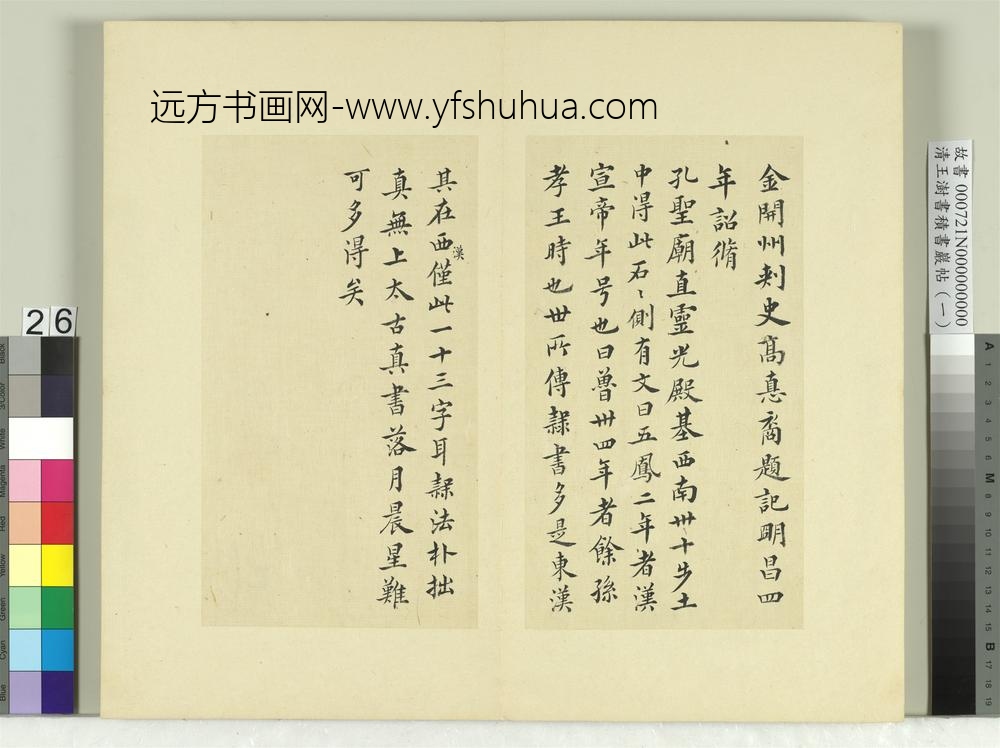 远方书画网-www.yfshuhua.com
金開州刺史髙悳裔題記明昌四
年詔脩
孔聖廟直靈光殿基西南卅十步土
中得此石〻側有文曰五鳳二年者漢
宣帝年号也曰魯卅四年者餘孫
孝王時也世所傳隸書多是東漢
其在西漢僅此一十三字耳隸法朴拙
真無上太古真書落月晨星難
可多得矣
故書 000721N000000000
清王澍書積書巖帖(一)
26
Black
3/Color
White
Magenta
Red
Yellow
Green
Cyan
Blue
A 1 2 3 4 5 6 M 8 9 10 11 12 13 14 15 B 17 18 19